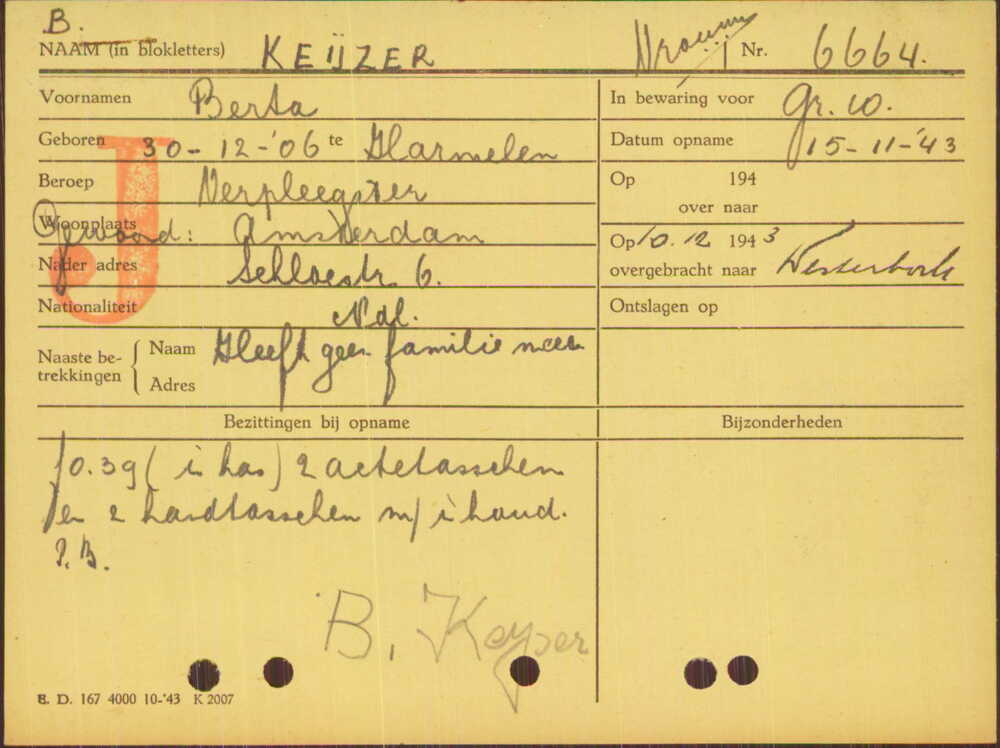 B.
NAAM (in blokletters) KEIJZER
Vrouw Nr. 6664.
Voornamen Berta
In bewaring voor Gr. 10.
Geboren 30-12-'06 te Harmelen
Datum opname 15-11-'43
Beroep Verpleegster
Op 194
over naar
Woonplaats gewoond: Amsterdam
Op 10.12 1943
overgebracht naar Westerbork
Nader adres 6.
Nationaliteit Ndl.
Ontslagen op
Naaste betrekkingen { Naam Heeft geen familie meer
Adres
J
Bezittingen bij opname
Bijzonderheden
f0.39 (i kas) 2 actetasschen
en 2 handtasschen m/ i houd.
P.B.
B. Keyser
E. D. 167 4000 10-'43 K 2007